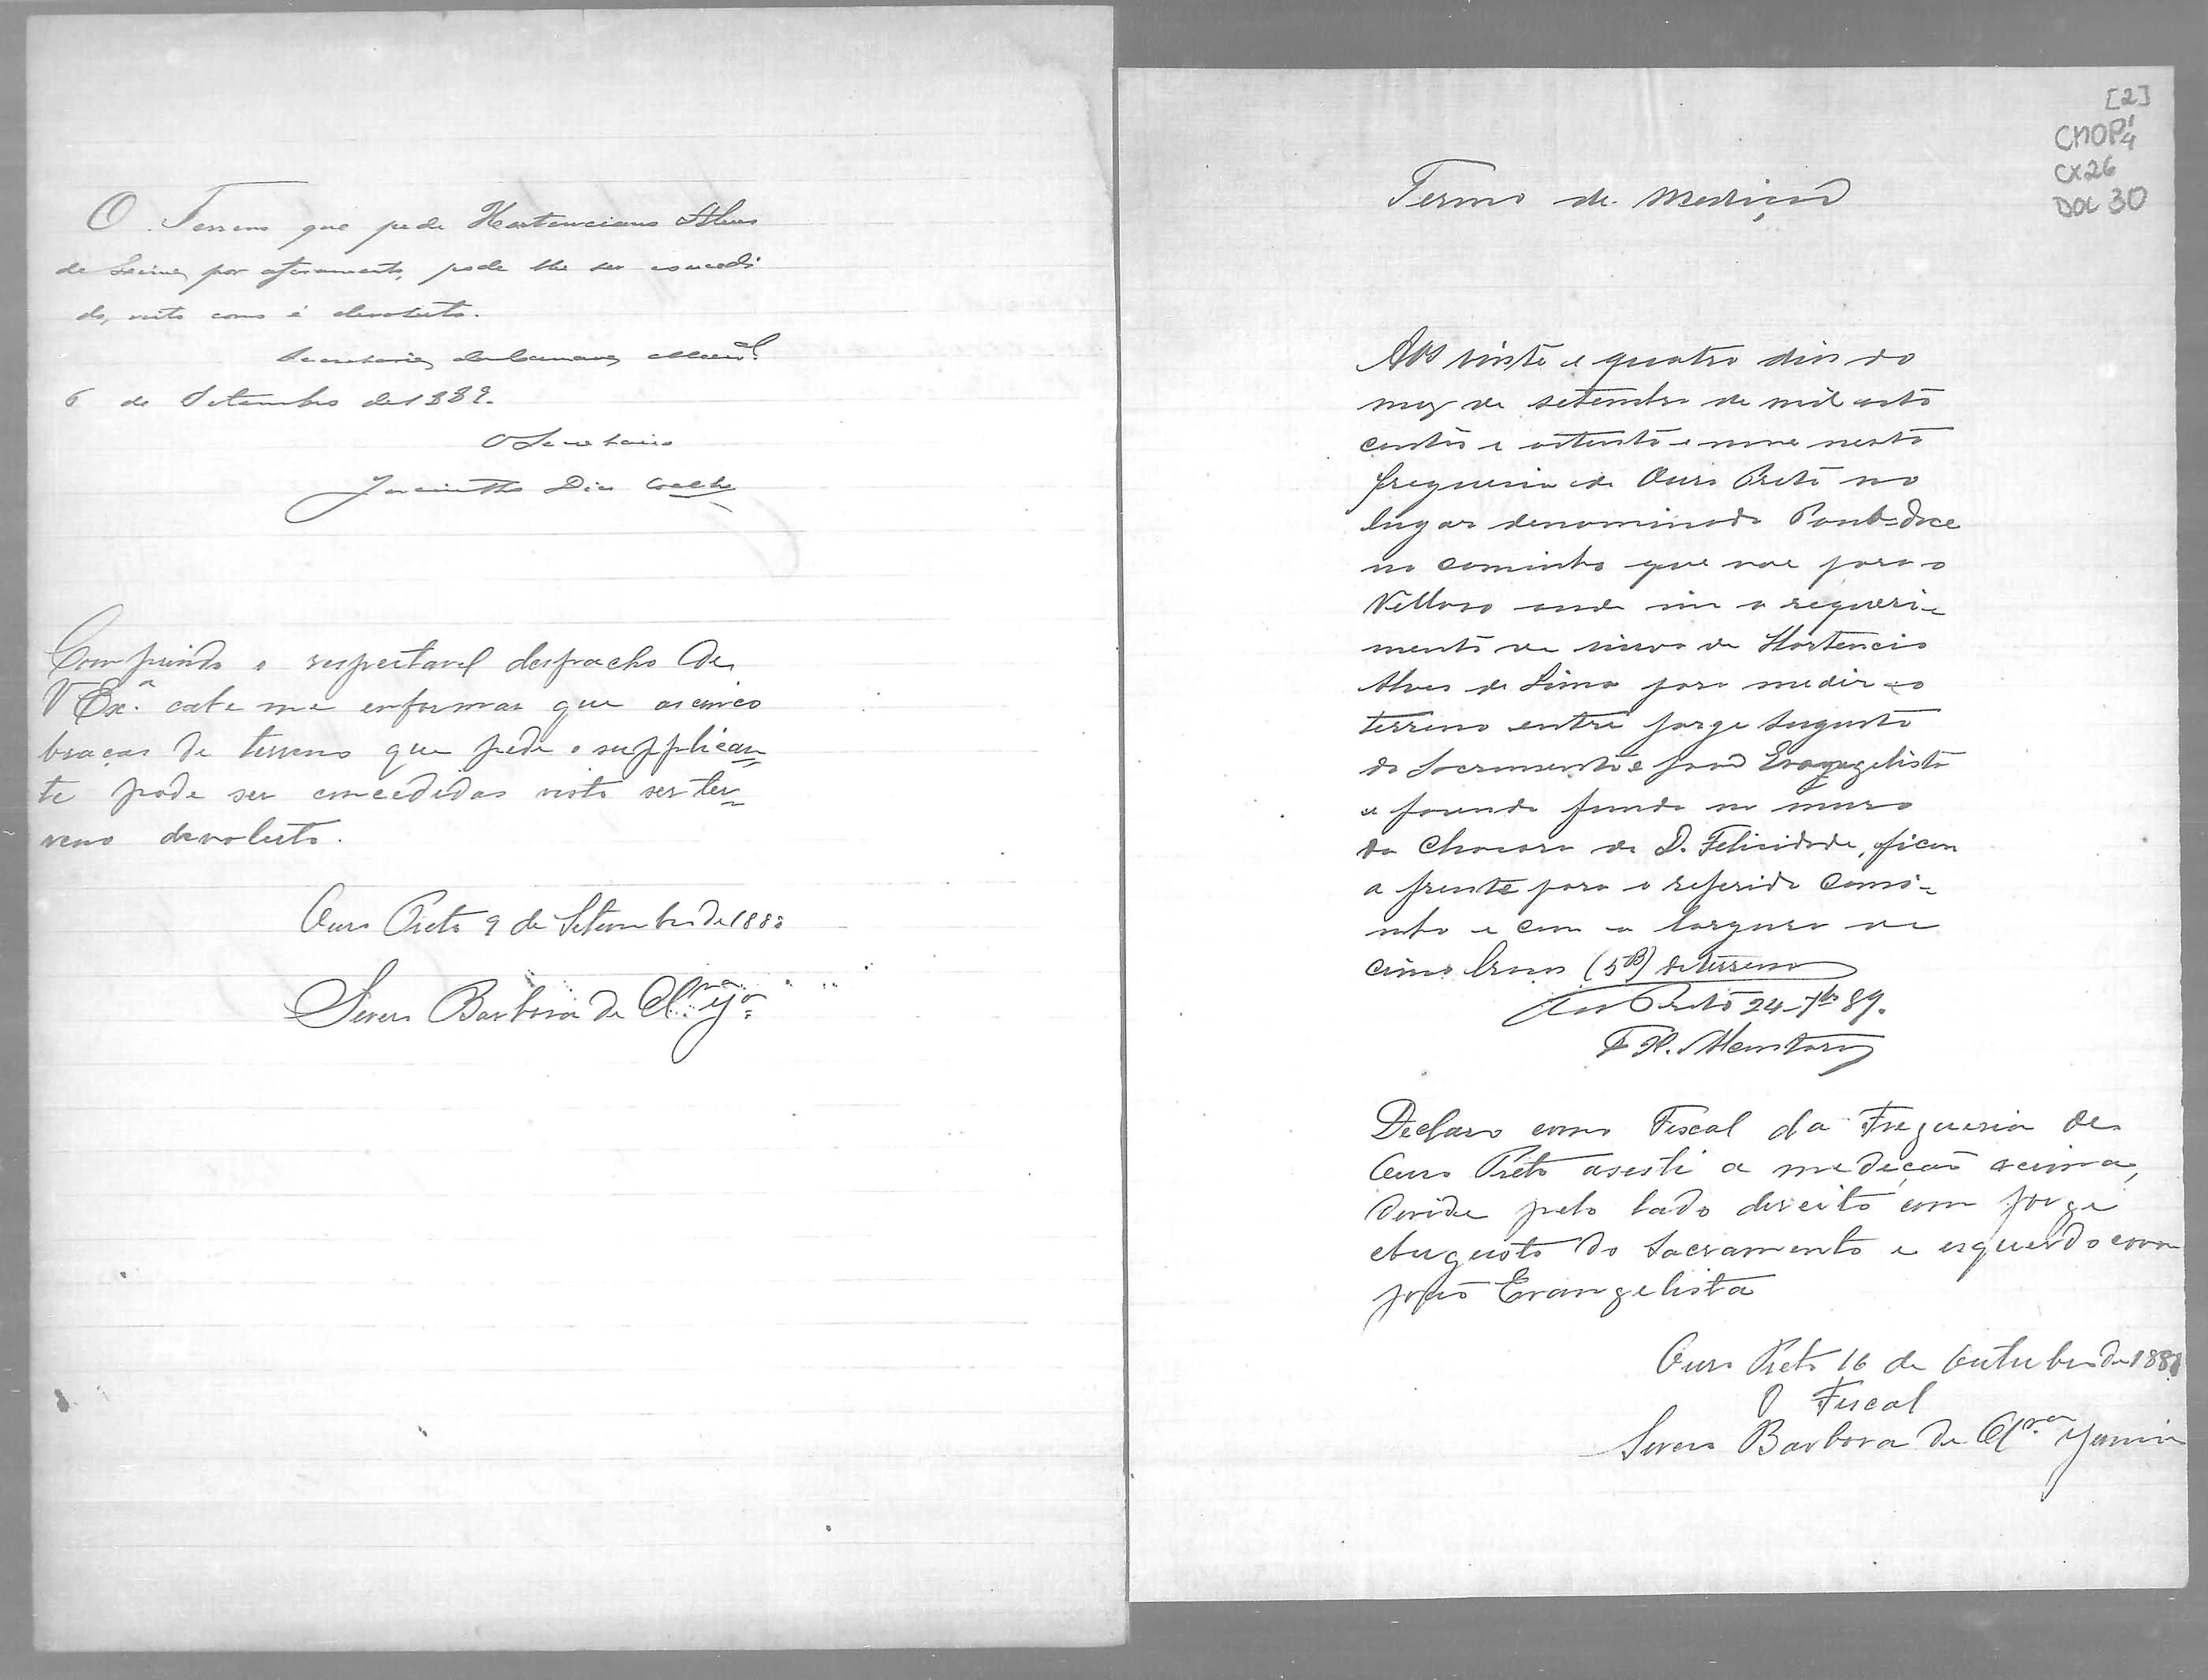 O Terreno que pede Hortenciano Alves
de Lima, por aforamento, pode lhe ser concedi
do, visto como é devoluto.
Secretaria da Camara Mun.al
6 de Setembro de 1889.
O Secretario
Jacintho Dias Coelho
Comprindo o respeitavel despacho de
V Ex.a cabe me enformar que as cinco
braças de terreno que pede o supplican
te pode ser concedidas visto ser ter
reno devoluto.
Ouro Preto 9 de Setembro de 188
Severo Barbosa de Olra Jor
[2]
CMOP
CX26
DOC 30
Termo de Medição
Aos vinte e quatro dias do
mez de setembro de mil oito
centos e oitenta e nove nesta
freguesia de Ouro Preto no
lugar denominado Ponte-doce
no caminho que vae para o
Velloso onde vim a requeri-
mento de Hortencio
Alves de Lima para medir o
terreno entre Jorge Augusto
do Sacramento e João Evangelista
e fazendo fundo no muro
da Chacara de D. Felicidade, fican
a frente para o referido cami-
nho e com a largura de
cinco braças (5B) de terreno
Ouro Preto 24-7bro 89.
Declaro como Fiscal da Freguesia de
Ouro Preto asesti a medição acima,
devide pelo lado direito com Jorge
Augusto do Sacramento e esquerdo com
João Evangelista
Ouro Preto 16 de Outubro de 188
O Fiscal
Severo Barbosa de Olra Junior